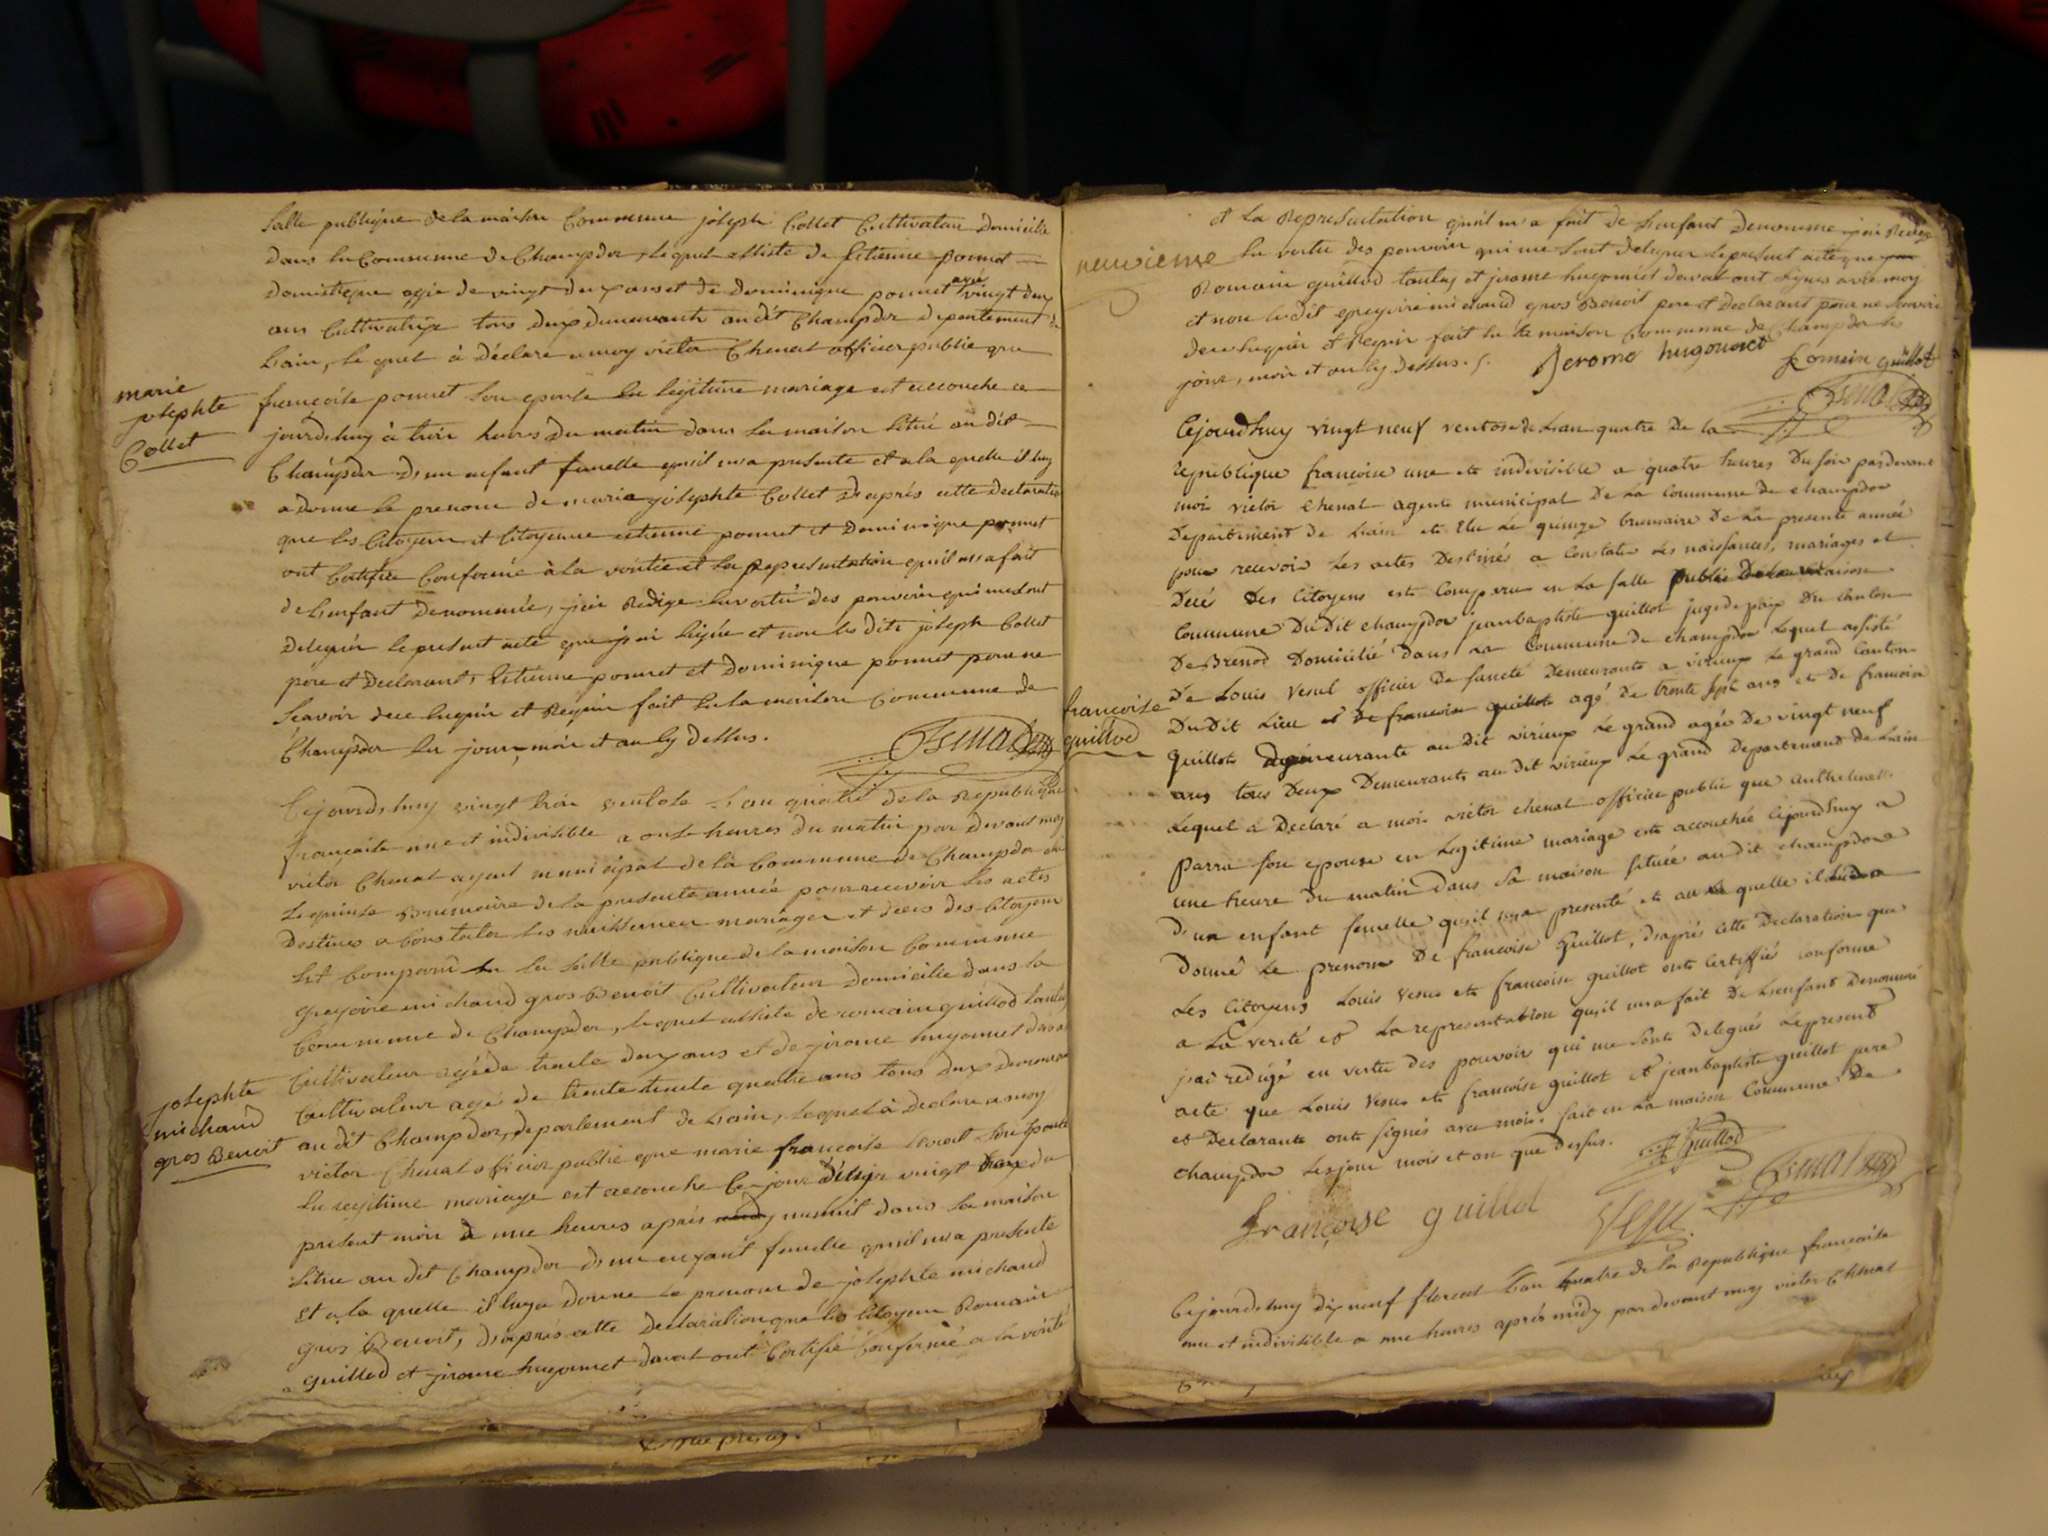 Salle publique de la maison Commune joseph Collet Cultivateur domicilie
dans la Commune de Champdor, lequel assiste de Etienne ponnet
domestique agé de vingt deux ans et de dominique ponnet agée vingt deux
ans Cultivatrice tous deux demeurants audit Champdor departement de
Lain, le quel à Déclaré a moy victor Chenal officier public que
francoise ponnet son epouse en légitime mariage est accouche ce
marie
josephte
Collet
jourdhuy à trois heures du matin dans sa maison situé au dit
Champdor d'un enfant femelle qu'il m'a presenté et a la quelle il luy
a donne le prenom de marie josephte Collet d'après cette declaration
que les Citoyen et Citoyenne etienne ponnet et dominique ponnet
ont Certifie Conforme à la vérité et la Representation qu'il m'a fait
de l'enfant denommée, j'ai Redige en vertu des pouvoir qui me sont
delegués le present acte que j'ai signé et non les dits joseph Collet
pere et Declarant, Etienne ponnet et dominique ponnet pour ne
scavoir de ce enquis et Requis fait en la maison Commune de
Champdor les jour, mois et an cy dessus.
Cejourdhuy vingt trois ventose l'an quatre de la Republique
francaise une et indivisible a onze heures du matin par devant moy
victor Chenal agent municipal de la Commune de Champdor elu
le quinze Brumaire de la presente année pour recevoir les actes
destinés a Constater les naissances mariages et deces des Citoyens
Est Comparu en la salle publique de la maison Commune
gregoire michaud gros Benoit Cultivateur domicilie dans la
Commune de Champdor, lequel assiste de romain guillod taulas
josephte
michaud
gros Benoit
Cultivateur agé de trente deux ans et de jirome hugonnet daval
Cultivateur agé de trente quatre ans tous deux demeurant
au dit Champdor, departement de Lain, lequel à declare a moy
victor Chenal officier public que marie francoise son epouse
en legitime mariage est accouche Ce jour vingt du
present mois a une heures après minuit dans sa maison
situe au dit Champdor d'un enfant femelle qu'il m'a presente
et a la quelle il luy a donne le prenom de josephte michaud
gros Benoit, d'après cette declaration que les Citoyen Romain
guillod et jirome hugonnet daval ont Certifié Conforme a la vérité
et la Representation qu'il m'a fait de l'enfant denomme j'ai Redige
neuvieme
en vertu des pouvoir qui me sont delegués le present acte que
Romain guillod taulas et jirome hugonnet daval ont signes avec moy
et non le dit gregoire michaud gros Benoit pere et declarant pour ne scavoir
de ce enquis et Requis fait en la maison Commune de Champdor les
jour, mois et an cy dessus.
Jerome hugonnet
Romain guillot
Cejourdhuy vingt neuf ventose de lan quatre de la
republique francoise une et indivisible a quatre heures du soir pardevant
moi victor chenal agent municipal de la Commune de champdor
departement de lain et Elu le quinze brumaire de la presente année
pour recevoir les actes destinés a Constater les naissances, mariages et
décés des Citoyens est Comparu en la salle public de la maison
Commune du dit champdor jean baptiste guillot juge de paix du canton
de Brenod domicilié dans la Commune de champdor lequel assisté
de Louis Vesu officier de santé demeurante a virieux le grand Canton
francoise
guillod
du dit lieu agé de trente sept ans et de francoise
guillot demeurante au dit virieux le grand agée de vingt neuf
ans tous deux demeurants au dit virieux le grand departement de lain
lequel a declaré a moi victor chenal officier public que anthelmette
parra son epouse en legitime mariage est accouchée cejourdhuy a
une heure du matin dans sa maison située au dit champdor
d'un enfant femelle qu'il m'a presenté et a la quelle il a
donné le prenom de francoise guillot, d'aprés cette declaration que
les citoyens Louis Vesu et francoise guillot ont certiffiés conforme
a la verité et la representation qu'il m'a fait de lenfant denommé
j'ai redigé en vertu des pouvoir qui me sont delegués le present
acte que Louis Vesu et francoise guillot et jean baptiste guillot pere
et declarante ont signés avec moi. fait en la maison Commune de
champdor les jour mois et an que dessus.
Guillod
françoise guillod
Vesu
Cejourdhuy dix neuf floreal lan quatre de la Republique francaise
une et indivisible a une heures après midy par devant moy victor Chenal